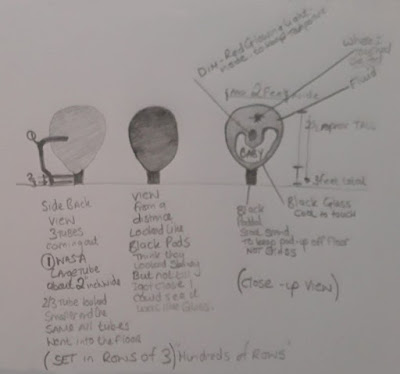 DIM-Red Glowing Light
inside to keep temperature
Where I
touched
Fluid
2 Feet wide
TALL
BABY
①
3
Side Back
View
3 Tubes
coming out
① WAS A
Large Tube
about 2" inch wide
2/3 Tube looked
Smaller and the
SAME All tubes
Went into the Floor
View
From a
distance
Looked Like
Black Pods
Think they
Looked Shiny
But not till
I got close I
could see it
was like Glass.
Black
Stand
to keep pod up off Floor
NOT GLASS
Black Glass
Cool to touch
(Close-up View)
(SET in ROWS of 3) "Hundreds of ROWS"